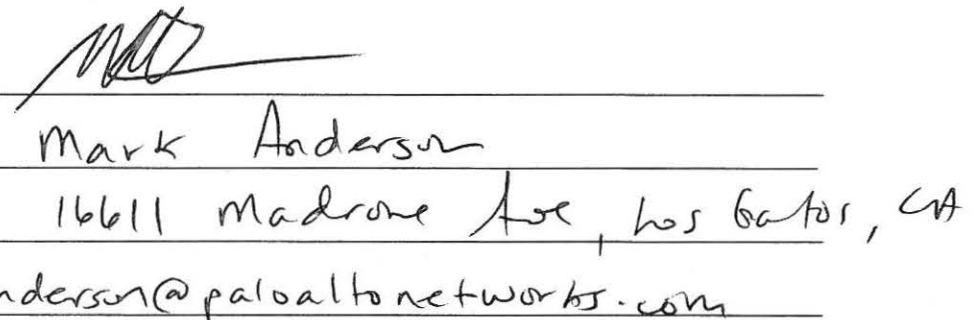 Mark Anderson
16611 Madrone Ave, Los Gatos, CA
nderson@paloaltonetworks.com